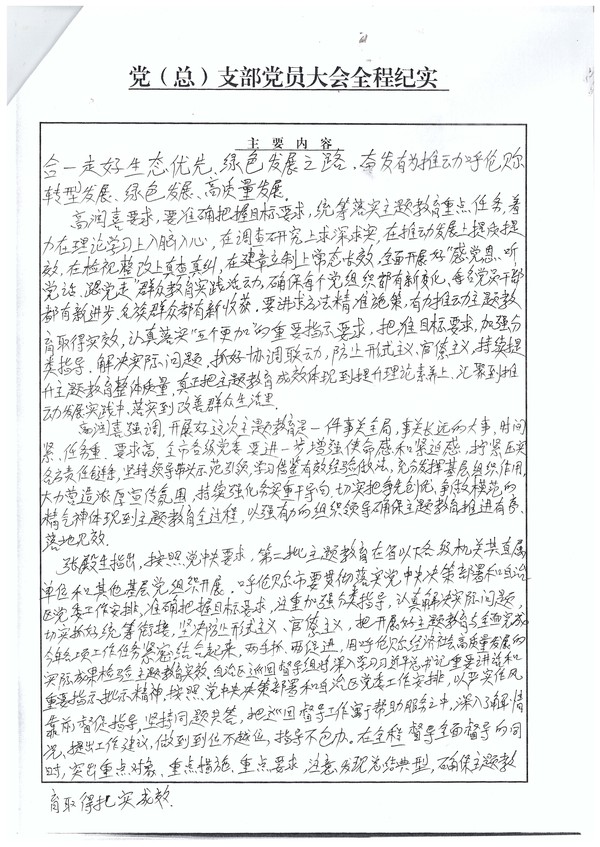 党（总）支部党员大会全程纪实
主 要 内 容
合一走好生态优先、绿色发展之路，奋发有为推动呼伦贝尔
转型发展、绿色发展、高质量发展。
高润喜要求，要准确把握目标要求，统筹落实主题教育重点任务，着
力在理论学习上入脑入心，在调查研究上求深求实，在推动发展上提质提
效，在检视整改上真查真纠，在建章立制上常态长效，全面开展好“感党恩、听
党话、跟党走”群众教育实践活动，确保每个党组织都有新变化，每名党员干部
都有新进步，各族群众都有新收获。要讲求方法精准施策，有力推动主题教
育取得实效，认真落实“五个更加”的重要指示要求，把准目标要求，加强分
类指导，解决实际问题，抓好协调联动，防止形式主义、官僚主义，持续提
升主题教育整体质量，真正把主题教育成效体现到提升理论素养上、汇聚到推
动发展实践中、落实到改善群众生活里。
高润喜强调，开展好这次主题教育是一件事关全局、事关长远的大事，时间
紧、任务重、要求高，全市各级党委要进一步增强使命感和紧迫感，拧紧压实
各方责任链条，坚持领导带头示范引领，学习借鉴有效经验做法，充分发挥基层组织作用，
大力营造浓厚宣传氛围，持续强化务实重干导向，切实把争先创优、争做模范的
精气神体现到主题教育全过程，以强有力的组织领导确保主题教育推进有序、
落地见效。
张殿生指出，按照党中央要求，第二批主题教育在省以下各级机关其直属
单位和其他基层党组织开展。呼伦贝尔市要贯彻落实党中央决策部署和自治
区党委工作安排，准确把握目标要求，注重加强分类指导，认真解决实际问题，
切实抓好统筹衔接，坚决防止形式主义、官僚主义，把开展好主题教育与全面完成
今年各项工作任务紧密结合起来，两手抓、两促进，用呼伦贝尔经济社会高质量发展的
实际成果检验主题教育实效。自治区巡回督导组将深入学习习近平总书记重要讲话和
重要指示批示精神，按照党中央决策部署和自治区党委工作安排，以严实作风
靠前督促指导，坚持同题共答，把巡回督导工作寓于帮助服务之中，深入了解情
况，提出工作建议，做到到位不越位，指导不包办。在全程督导全面督导的同
时，突出重点对象、重点措施、重点要求，注意发现总结典型，确保主题教
育取得扎实成效。